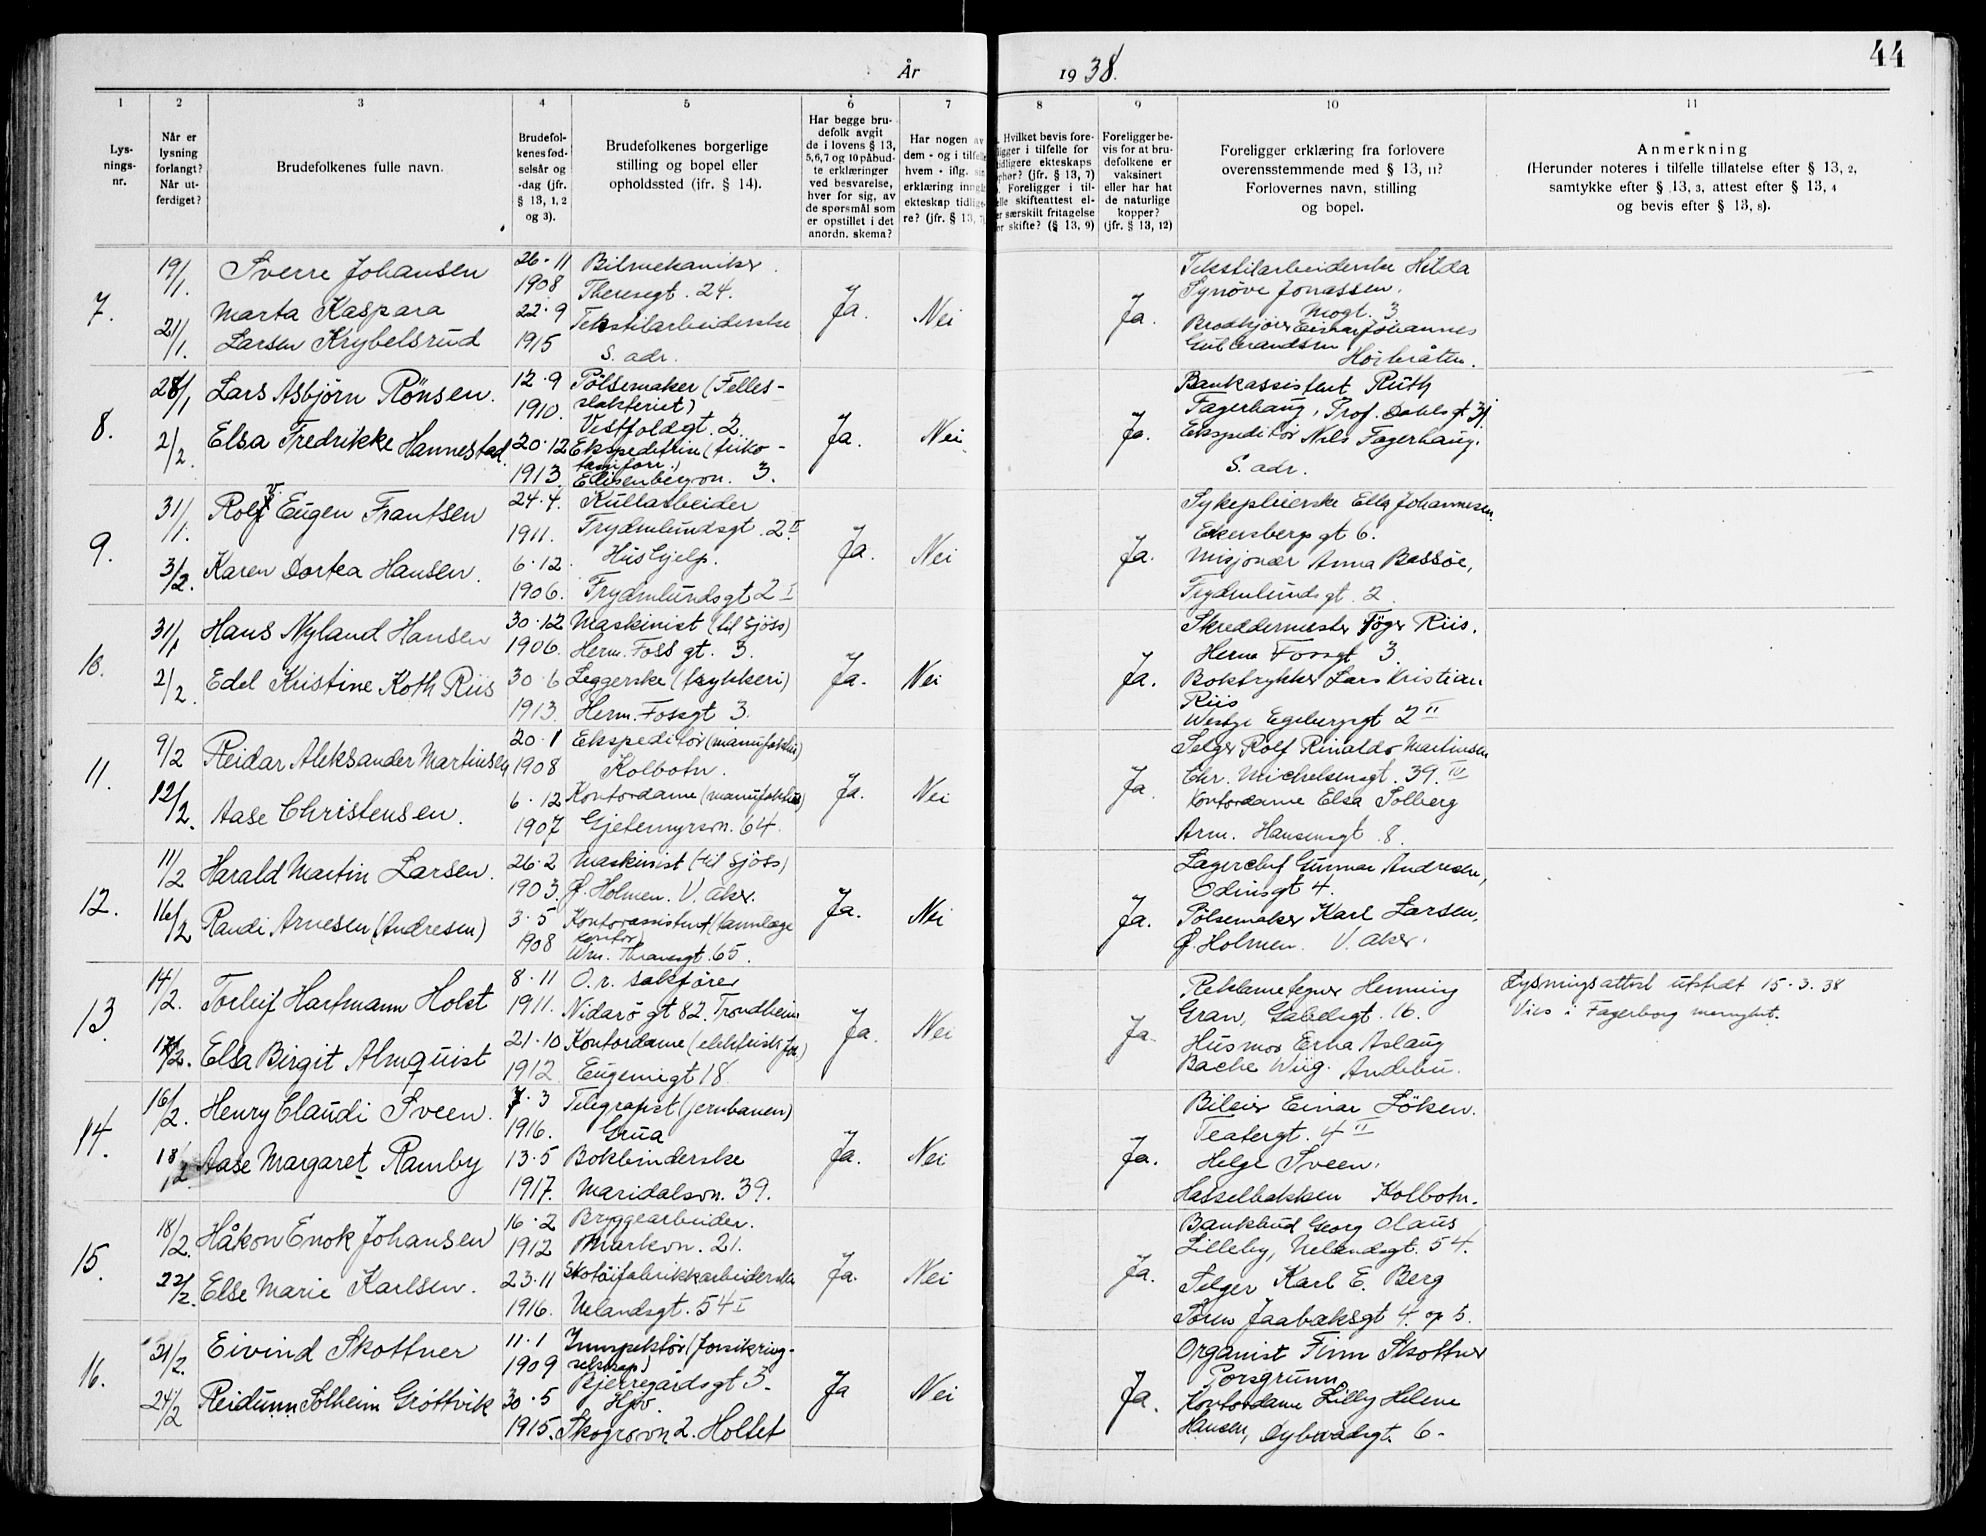 År 1938.
44
1 2 3 4 5 6 7 8 9 10 11
Lys-
nings-
nr.
Når er
lysning
forlangt?
Når ut-
ferdiget?
Brudefolkenes fulle navn.
Brudefol-
kenes fød-
selsår og
-dag (jfr.
§ 13, 1, 2
og 3).
Brudefolkenes borgerlige
stilling og bopel eller
opholdssted (jfr. § 14).
Har begge bru-
defolk avgit
de i lovens § 13,
5,6,7 og 10 påbud-
te erklæringer
ved besvarelse,
hver for sig, av
de spørsmål som
er opstillet i det
anordn. skema?
Har nogen av
dem - og i tilfelle
hvem - iflg. sin
erklæring inngått
ekteskap tidlige-
re? (jfr. § 13, 7)
Hvilket bevis fore-
ligger i tilfelle for
tidligere ekteskaps
ophør? (jfr. § 13, 7)
Foreligger i til-
felle skifteattest el-
ler særskilt fritagelse
for skifte? (§ 13, 9)
Foreligger be-
vis for at bru-
defolkene er
vaksinert
eller har hat
de naturlige
kopper?
(jfr. § 13, 12)
Foreligger erklæring fra forlovere
overensstemmende med § 13, 11?
Forlovernes navn, stilling
og bopel.
Anmerkning
(Herunder noteres i tilfelle tillatelse efter § 13, 2,
samtykke efter § 13, 3, attest efter § 13, 4
og bevis efter § 13, 8).
7.
19/1.
21/1.
Sverre Johansen
Marta Kaspara
Larsen Krybelsrud
26·11
1908
22·9
1915
Bilmekaniker
Theresegt. 24.
Tekstilarbeiderske
S. adr.
Ja.
Nei
Ja.
Tekstilarbeiderske Hilda
Synöve Jonassen.
Mogt. 3
Brodkjörer Einar Johannes
Gulbrandsen
Höibråten.
8.
28/1
2/2.
Lars Asbjörn Rönsen.
Elsa Fredrikke Hannestad.
12·9
1910.
20·12
1913.
Pölsemaker (Felles-
slakteriet)
Vestfoldgt. 2
Ekspeditrise (triko-
tasjforr.)
Elisenbergvn. 3.
Ja.
Nei
Ja.
Bankassistent Ruth
Fagerhaug, Prof. Dahlsgt 31
Ekspeditör Nils Fagerhaug.
S. adr.
9.
31/1.
3/2.
Rolf Eugen Frantsen
Karen Dortea Hansen.
24·4.
1911.
6·12.
1906.
Kullarbeider
Frydenlundsgt. 2 II
Hushjelp.
Frydenlundsgt 2 I
Ja.
Nei
Ja.
Sykepleierske Ella Johannesen.
Ekersbergs gt 6.
Misjonær Anna Bassöe,
Frydenlunds gt. 2.
10.
31/1
2/2.
Hans Nyland Hansen
Edel Kristine Koth Riis
30·12
1906.
30·6
1913.
Maskinist (til sjöss)
Herm. Foss gt. 3.
Leggerske (trykkeri)
Herm. Fossgt 3.
Ja.
Nei
Ja.
Skreddermester Töger Riis.
Herm Fossgt 3.
Boktrykker Lars Kristian
Riis
Westye Egebergsgt 2 II
11.
9/2
12/2.
Reidar Aleksander Martinsen
Aase Christensen.
20·1
1908
6·12
1907
Ekspeditör (manufaktur)
Kolbotn.
Kontordame (manufaktur)
Gjetemyrsvn. 64.
Ja.
Nei
Ja.
Selger Rolf Rinaldo Martinsen
Chr. Michelsensgt. 39. IV
Kontordame Elsa Solberg
Arm. Hansensgt. 8.
12.
11/2
16/2
Harald Martin Larsen.
Randi Arnesen (Andresen)
26·2
1903.
3·5
1908
Maskinist (til sjöss)
Ø. Holmen. V. Aker.
Kontorassistent (tannlege
kontor)
Wm. Thranesgt. 65.
Ja.
Nei
Ja.
Lagerchef Gunnar Andresen,
Odinsgt 4.
Pölsemaker Karl Larsen,
Ø. Holmen. V. Aker.
13.
14/2.
17/2.
Torleif Hartmann Holst
Elsa Birgit Almquist
8·11
1911.
21·10
1912
O.r. sakförer
Nidarö gt 82. Trondheim
Kontordame (elektrisk for.)
Eugeniegt 18.
Ja.
Nei
Ja.
Reklametegner Henning
Gran, Gabelsgt. 16.
Husmor Erna Aslaug
Bache Wiig. Andebu.
Lysningsattest utstedt 15·3.38
Vies i Fagerborg menighet.
14.
16/2.
18/2
Henry Claudi Sveen.
Aase Margaret Ramby
7·3
1916.
13·5
1917.
Telegrafist (jernbanen)
Grua
Bokbinderske
Maridalsvn. 39.
Ja.
Nei
Ja.
Bileier Einar Löken.
Teatergt. 4 II
Helge Sveen.
Hasselbakken Kolbotn.
15.
18/2.
22/2.
Håkon Enok Johansen
Else Marie Karlsen.
16·2
1912
23·11
1916.
Bryggearbeider.
Markvn. 21.
Skotöifabrikkarbeiderske
Uelandsgt. 54 I
Ja.
Nei
Ja.
Bankbud Georg Olaus
Lilleby, Uelandsgt. 54.
Selger Karl E. Berg
Sören Jaabæksgt 4. op 5.
16.
21/2.
24/2
Eivind Skottner
Reidunn Solheim Gröttvik
11·1
1909
30·5
1915.
Innspektör (forsikring-
selskap)
Bjerregårdsgt 3-
Hjv.
Skogrovn 2. Holtet
Ja
Nei
Ja.
Organist Finn Skottner
Porsgrunn.
Kontordame Lilly Helene
Hansen, Dybwadsgt. 6-